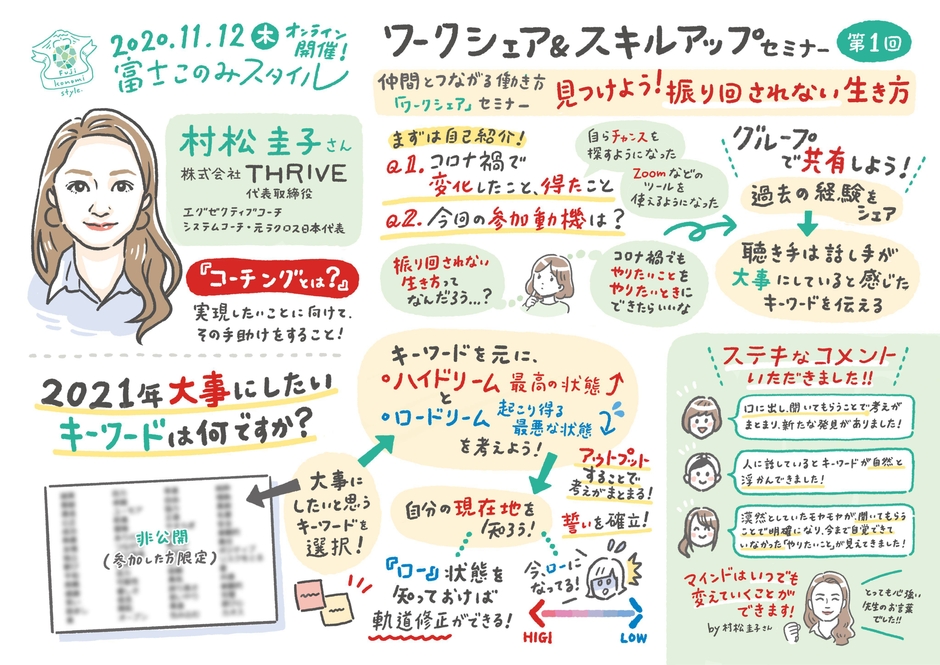 Fuji
konomi
style.
2020.11.12 木 オンライン
開催!
富士このみスタイル
ワークシェア&スキルアップセミナー 第1回
仲間とつながる働き方
「ワークシェア」セミナー
見つけよう!振り回されない生き方
村松 圭子さん
株式会社 THRIVE
代表取締役
エグゼクティブコーチ
システムコーチ・元ラクロス日本代表
『コーチングとは?』
実現したいことに向けて、
その手助けをすること!
まずは自己紹介!
Q1.コロナ禍で
変化したこと、得たこと
Q2.今回の参加動機は?
自らチャンスを
探すようになった
Zoomなどの
ツールを
使えるようになった
振り回されない
生き方って
なんだろう…?
コロナ禍でも
やりたいことを
やりたいときに
できたらいいな
グループ
で共有しよう!
過去の経験を
シェア
聴き手は話し手が
大事にしていると感じた
キーワードを伝える
2021年大事にしたい
キーワードは何ですか?
非公開
(参加した方限定)
大事に
したいと思う
キーワードを
選択!
キーワードを元に、
ハイドリーム 最高の状態
と
ロードリーム 起こり得る
最悪な状態
を考えよう!
アウトプット
することで
考えがまとまる!
誓いを確立!
自分の現在地を
知ろう!
『ロー』状態を
知っておけば
軌道修正ができる!
今、ローに
なってる!
HIGH
LOW
ステキなコメント
いただきました!!
口に出し、聞いてもらうことで考えが
まとまり、新たな発見がありました!
人に話しているとキーワードが自然と
浮かんできました!
漠然としていたモヤモヤが、聞いてもらう
ことで明確になり、今まで自覚できて
いなかった「やりたいこと」が見えてきました!
マインドはいつでも
変えていくことが
できます!
by 村松圭子さん
とっても心強い
先生のお言葉
でした!!